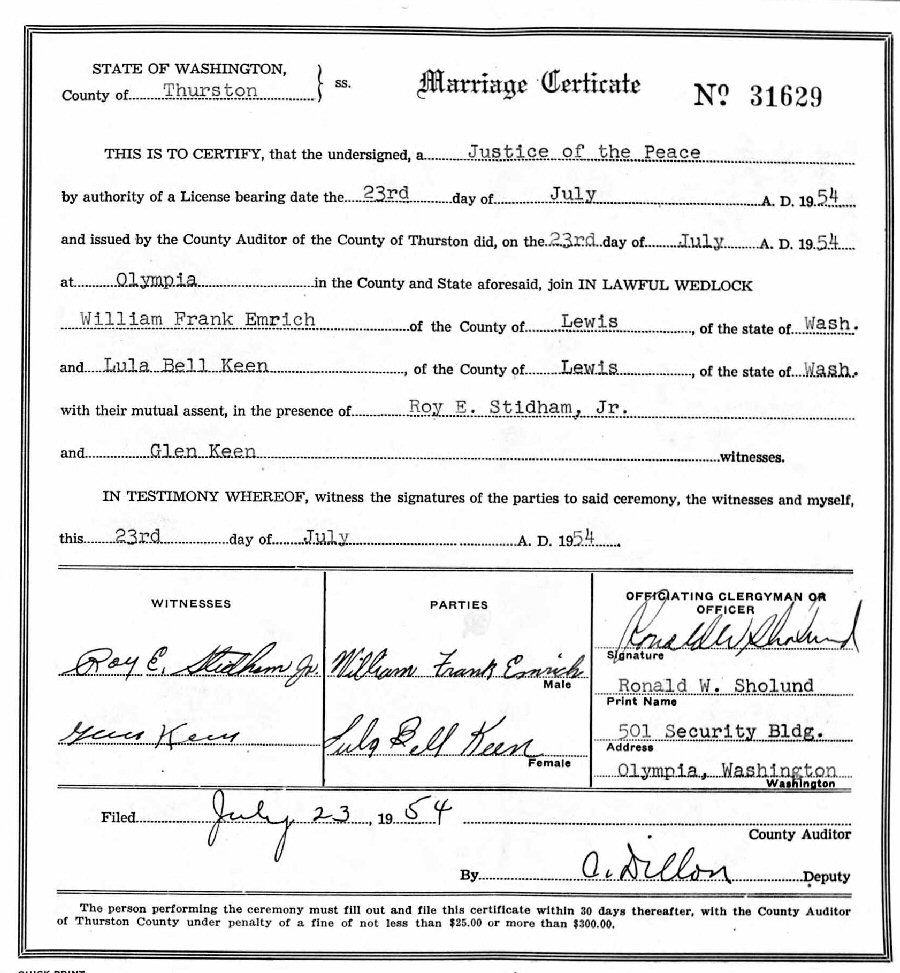 STATE OF WASHINGTON,
County of Thurston } ss. Marriage Certicate No 31629
THIS IS TO CERTIFY, that the undersigned, a Justice of the Peace
by authority of a License bearing date the 23rd day of July A. D. 1954
and issued by the County Auditor of the County of Thurston did, on the 23rd day of July A. D. 1954
at Olympia in the County and State aforesaid, join IN LAWFUL WEDLOCK
William Frank Emrich of the County of Lewis, of the state of Wash.
and Lula Bell Keen, of the County of Lewis, of the state of Wash.
with their mutual assent, in the presence of Roy E. Stidham, Jr.
and Glen Keen witnesses.
IN TESTIMONY WHEREOF, witness the signatures of the parties to said ceremony, the witnesses and myself,
this 23rd day of July A. D. 1954.
WITNESSES
Roy E. Stidham Jr.
Glen Keen
PARTIES
William Frank Emrich
Male
Lula Bell Keen
Female
OFFICIATING CLERGYMAN OR
OFFICER
Ronald W Sholund
Signature
Ronald W. Sholund
Print Name
501 Security Bldg.
Address
Olympia, Washington
Washington
Filed July 23, 1954
County Auditor
By C. Dillon Deputy
The person performing the ceremony must fill out and file this certificate within 30 days thereafter, with the County Auditor
of Thurston County under penalty of a fine of not less than $25.00 or more than $300.00.
QUICK PRINT